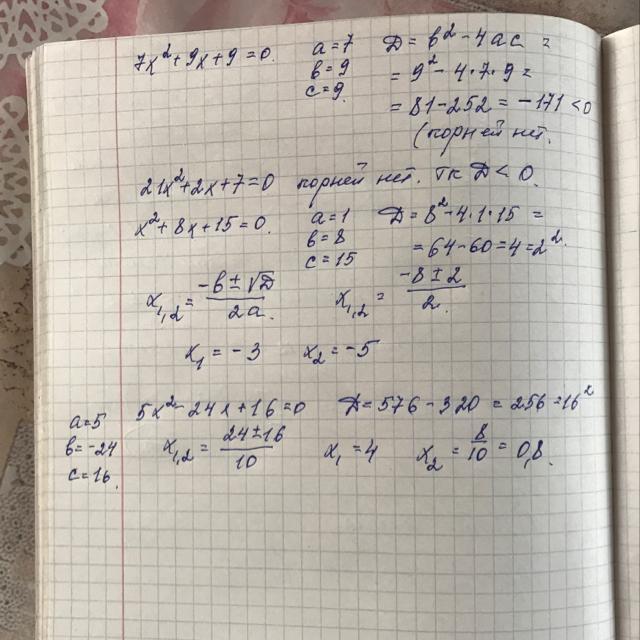 7x² + 9x + 9 = 0. a = 7 D = b² - 4ac =
b = 9 = 9² - 4·7·9 =
c = 9. = 81 - 252 = -171 < 0
(корней нет.
21x² + 2x + 7 = 0 корней нет. тк D < 0.
x² + 8x + 15 = 0. a = 1 D = 8² - 4·1·15 =
b = 8 = 64 - 60 = 4 = 2².
c = 15
x₁,₂ = (-b ± √D) / 2a. x₁,₂ = (-8 ± 2) / 2.
x₁ = -3 x₂ = -5
a = 5 5x² - 24x + 16 = 0 D = 576 - 320 = 256 = 16²
b = -24 x₁,₂ = (24 ± 16) / 10 x₁ = 4 x₂ = 8/10 = 0,8.
c = 16.